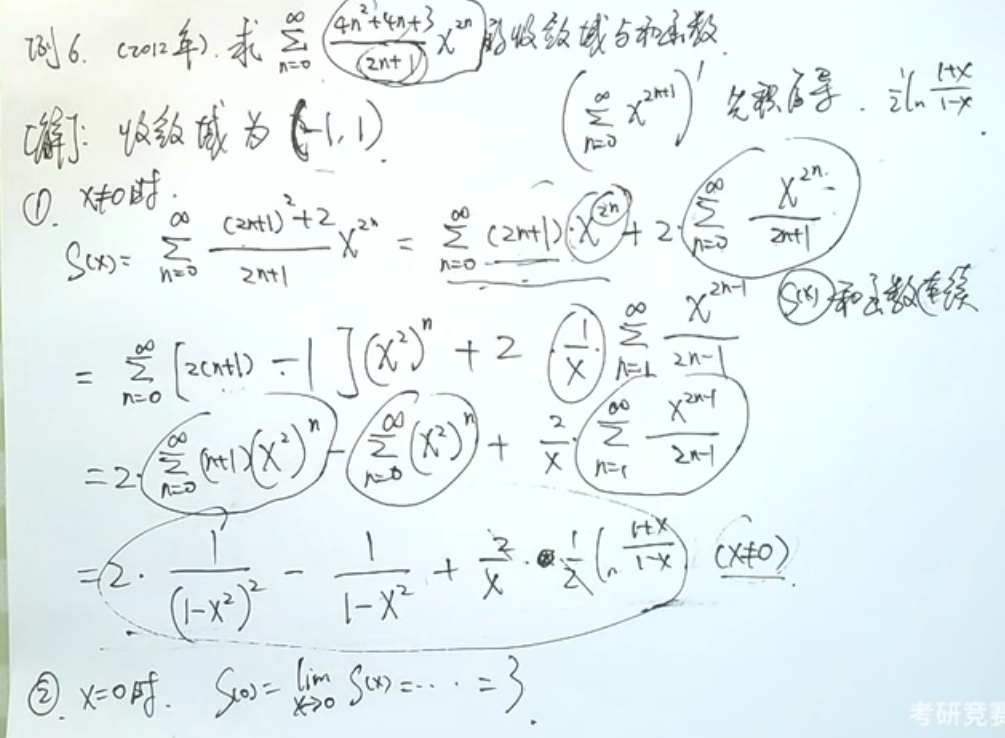 例6. (2012年). 求 ∑_{n=0}^{∞} (4n²+4n+3)/(2n+1) x^{2n} 的收敛域与和函数.
(∑_{n=0}^{∞} x^{2n+1})' 先积后导. 1/2 ln (1+x)/(1-x)
[解]: 收敛域为 (-1,1)
①. x≠0时.
S(x)= ∑_{n=0}^{∞} ((2n+1)²+2)/(2n+1) x^{2n} = ∑_{n=0}^{∞} (2n+1)·x^{2n} + 2·∑_{n=0}^{∞} x^{2n}/(2n+1)
S(x) 和函数连续
= ∑_{n=0}^{∞} [2(n+1) -1](x²)^n + 2 · 1/x · ∑_{n=1}^{∞} x^{2n-1}/(2n-1)
=2·∑_{n=0}^{∞} (n+1)(x²)^n - ∑_{n=0}^{∞} (x²)^n + 2/x · ∑_{n=1}^{∞} x^{2n-1}/(2n-1)
=2· 1/(1-x²)² - 1/(1-x²) + 2/x · 1/2 ln (1+x)/(1-x) (x≠0).
②. x=0时. S(0)= lim_{x→0} S(x) =····· =3.
考研竞赛